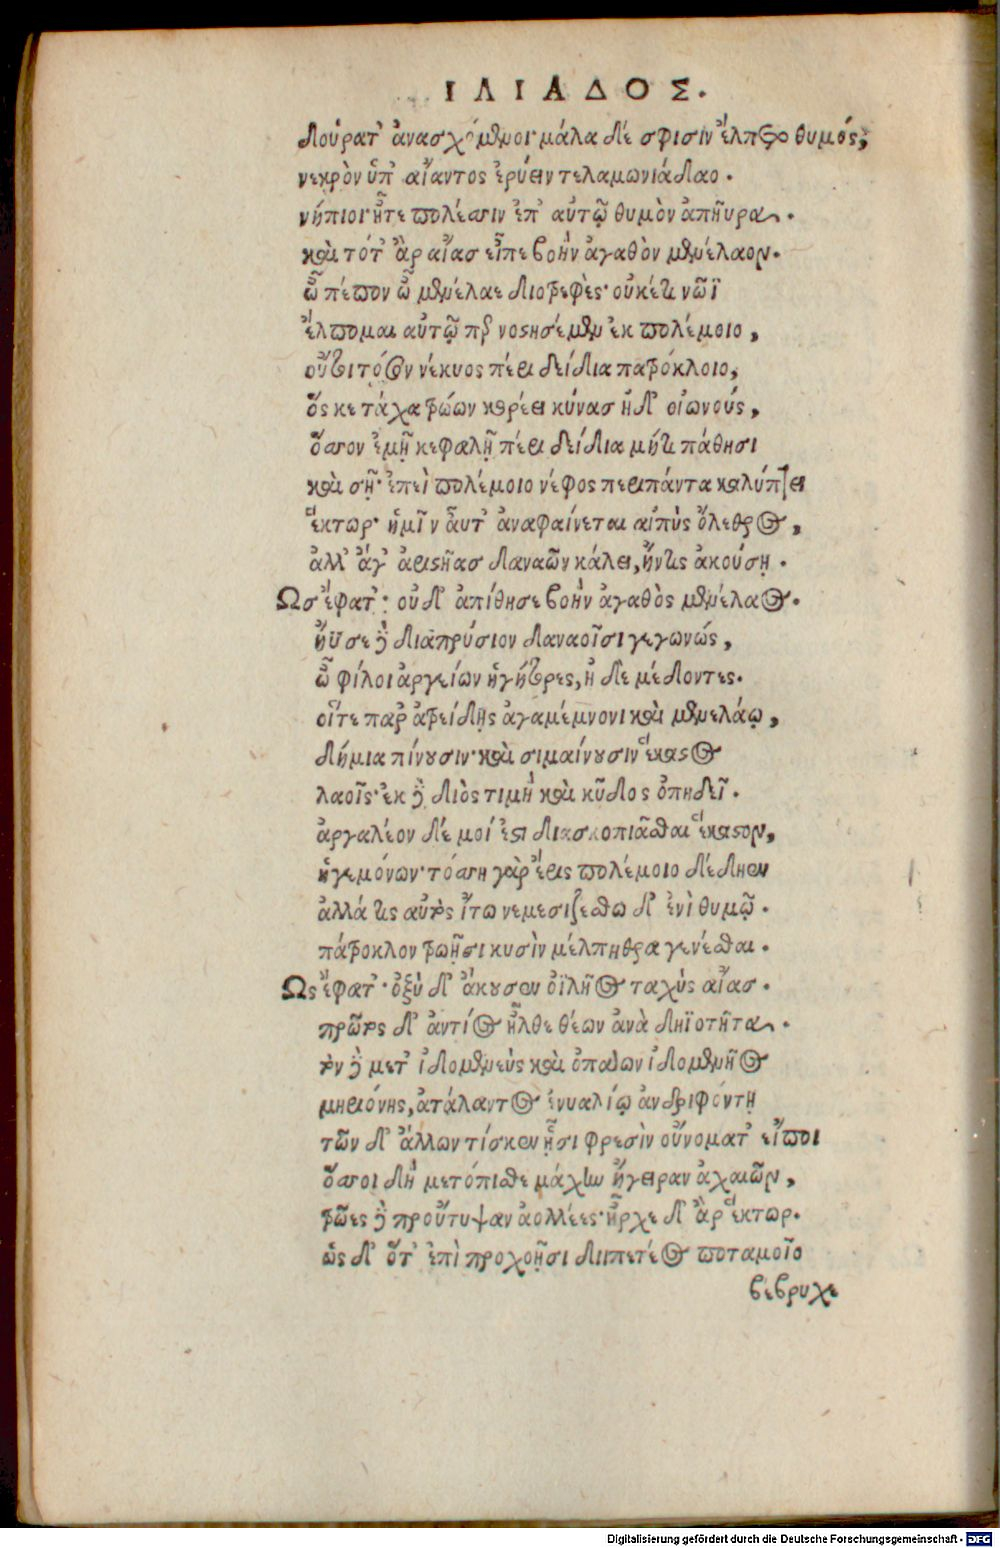 ΙΛΙΑΔΟΣ.
δούρατ' ἀνασχόμενοι· μάλα δέ σφισιν ἔλπετο θυμός,
νεκρὸν ὑπ' αἴαντος ἐρύειν τελαμωνιάδαο.
νήπιοι· ἦτε πολέσσιν ἐπ' αὐτῷ θυμὸν ἀπηῦρα.
καὶ τότ' ἂρ αἴας εἶπε βοὴν ἀγαθὸν μενέλαον.
ὦ πέπον ὦ μενέλαε διοτρεφὲς· οὐκέτι νῶϊ
ἔλπομαι αὐτῷ περ νοστησέμεν ἐκ πολέμοιο,
οὔτι τόσον νέκυος πέρι δείδια πατρόκλοιο,
ὅς κε τάχα τρώων κορέει κύνας ἠδ' οἰωνούς,
ὅσσον ἐμῇ κεφαλῇ πέρι δείδια μήτι πάθησι
καὶ σῇ· ἐπεὶ πολέμοιο νέφος περιπάντα καλύπτει
ἕκτωρ· ἡμῖν αὖτ' ἀναφαίνεται αἰπὺς ὄλεθρος,
ἀλλ' ἄγ' ἀριστῆας δαναῶν κάλει, ἤντις ἀκούσῃ.
Ως ἔφατ'· οὐδ' ἀπίθησε βοὴν ἀγαθὸς μενέλαος.
ἤϋσε δὲ διαπρύσιον δαναοῖσι γεγωνώς,
ὦ φίλοι ἀργείων ἡγήτορες, ἠδὲ μέδοντες.
οἵτε παρ' ἀτρείδῃς ἀγαμέμνονι καὶ μενελάῳ,
δήμια πίνουσιν· καὶ σιμαίνουσιν ἕκαστος
λαοῖς· ἐκ δὲ διὸς τιμὴ καὶ κῦδος ὀπηδεῖ.
ἀργαλέον δέ μοί ἐστι διασκοπιᾶσθαι ἕκαστον,
ἡγεμόνων· τόσση γὰρ ἔρις πολέμοιο δέδηεν
ἀλλά τις αὐτὸς ἴτω νεμεσιζέσθω δ' ἐνὶ θυμῷ.
πάτροκλον τρωῇσι κυσὶν μέλπηθρα γενέσθαι.
Ως ἔφατ'· ὀξὺ δ' ἄκουσεν ὀϊλῆος ταχὺς αἴας.
πρῶτος δ' ἀντίος ἦλθε θέων ἀνὰ δηϊοτῆτα.
τὸν δὲ μετ' ἰδομενεὺς καὶ ὀπάων ἰδομενῆος
μηριόνης, ἀτάλαντος ἐνυαλίῳ ἀνδριφόντῃ
τῶν δ' ἄλλων τίς κεν ᾗσι φρεσὶν οὔνοματ' εἴποι
ὅσσοι δὴ μετόπισθε μάχην ἤγειραν ἀχαιῶν,
τρῶες δὲ προὔτυψαν ἀολλέες· ἦρχε δ' ἂρ ἕκτωρ.
ὡς δ' ὅτ' ἐπὶ προχοῇσι διιπετέος ποταμοῖο
βέβρυχε
Digitalisierung gefördert durch die Deutsche Forschungsgemeinschaft - DFG